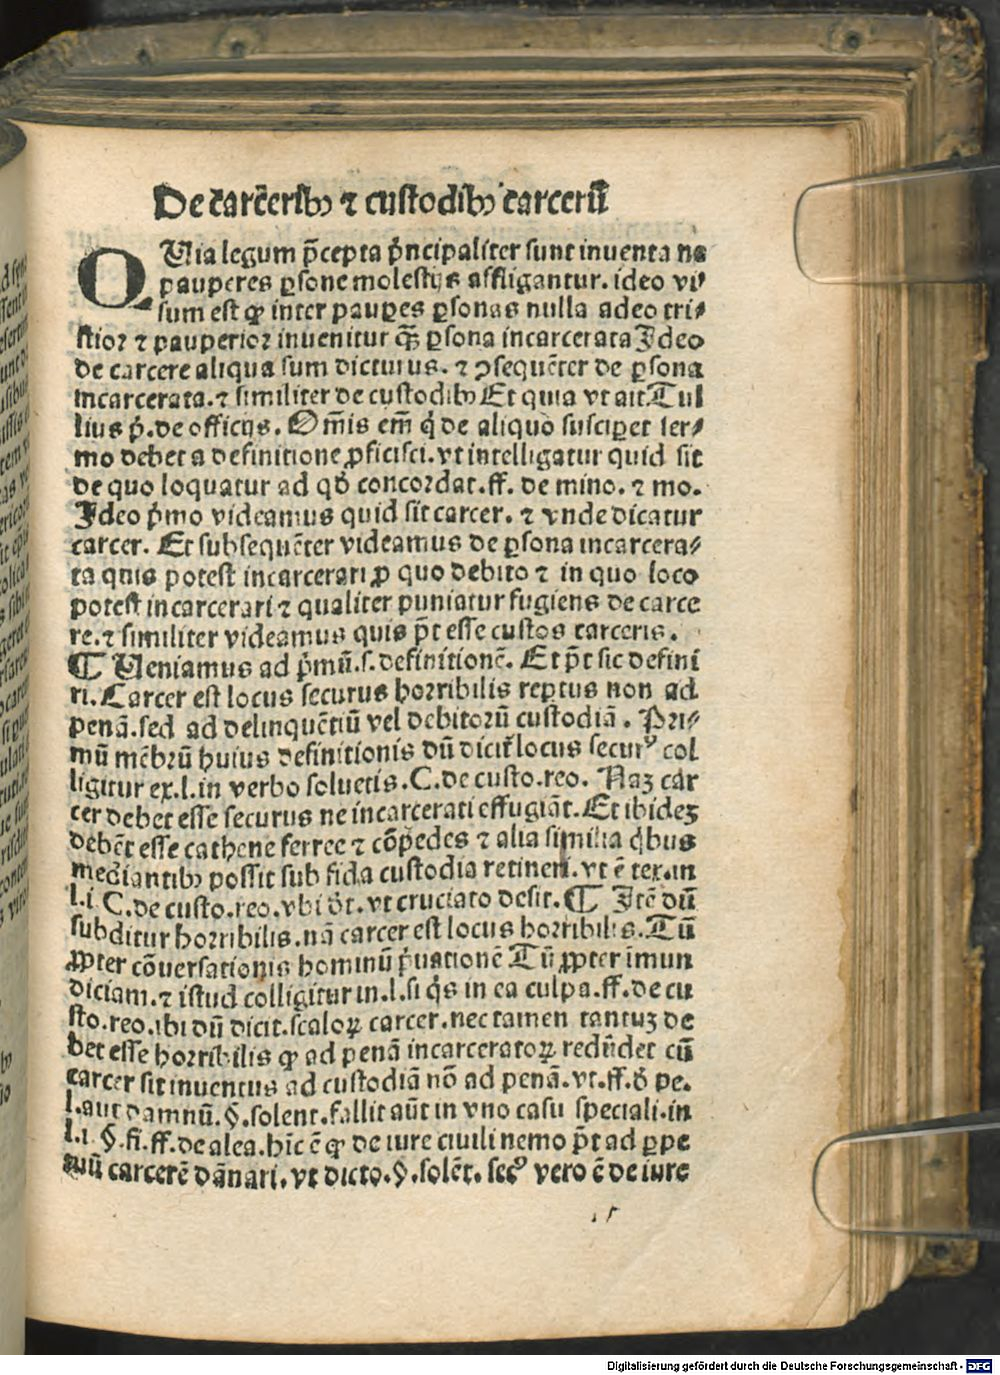 De carcẽribꝰ ⁊ custodibꝰ carcerũ
QUia legum p̃cepta pͥncipaliter sunt inuenta ne
pauperes ꝑsone molestijs affligantur. ideo vi⸗
sum est ꝙ inter pauꝑes ꝑsonas nulla adeo tri⸗
stioꝛ ⁊ pauperioꝛ inuenitur qᷓꝫ ꝑsona incarcerata Ideo
de carcere aliqua sum dicturus. ⁊ ꝯsequẽter de ꝑsona
incarcerata. ⁊ similiter de custodibꝰ Et quia vt ait Tul
lius pͥ. de officijs. Om̃is em̃ qͥ de aliquo susciꝑet ser⸗
mo debet a definitione ꝓficisci. vt intelligatur quid sit
de quo loquatur ad qđ concoꝛdat. ff. de mino. ⁊ mo.
Ideo pͥmo videamus quid sit carcer. ⁊ vnde dicatur
carcer. Et subsequẽter videamus de ꝑsona incarcera⸗
ta quis potest incarcerari ꝓ quo debito ⁊ in quo loco
potest incarcerari ⁊ qualiter puniatur fugiens de carce
re. ⁊ similiter videamus quis p̃t esse custos carceris.
¶ Ueniamus ad pͥmũ. s. definitionẽ. Et p̃t sic defini
ri. Carcer est locus securus hoꝛribilis reptus non ad
penã. sed ad delinquẽtiũ vel debitoꝛũ custodiã. Pꝛi⸗
mũ mẽbꝛũ huius definitionis dũ dicit̃ locus securꝰ col
ligitur ex. l. in verbo soluetis. C. de custo. reo. Naꝫ car
cer debet esse securus ne incarcerati effugiãt. Et ibideꝫ
debẽt esse cathene ferree ⁊ cõpedes ⁊ alia similia qͥbus
mediantibꝰ possit sub fida custodia retineri. vt ẽ tex. in
l. i. C. de custo. reo. vbi đt. vt cruciato desit. ¶ Itẽ dũ
subditur hoꝛribilis. nã carcer est locus hoꝛribilis. Tũ
ꝓpter cõuersationis hominũ pͥuationẽ Tũ ꝓpter imun
diciam. ⁊ istud colligitur in. l. si qͥs in ea culpa. ff. de cu
sto. reo. ibi dũ dicit. scaloꝝ carcer. nec tamen tantuꝫ de
bet esse hoꝛribilis ꝙ ad penã incarceratoꝝ redũdet cũ
carcer sit inuentus ad custodiã nõ ad penã. vt. ff. đ pe.
l. aut damnũ. §. solent. fallit aũt in vno casu speciali. in
l. i. §. fi. ff. de alea. hic ẽ ꝙ de iure ciuili nemo p̃t ad ꝑpe
tuũ carcerẽ dãnari. vt dicto. §. solẽt. secꝰ vero ẽ de iure
Digitalisierung gefördert durch die Deutsche Forschungsgemeinschaft - DFG